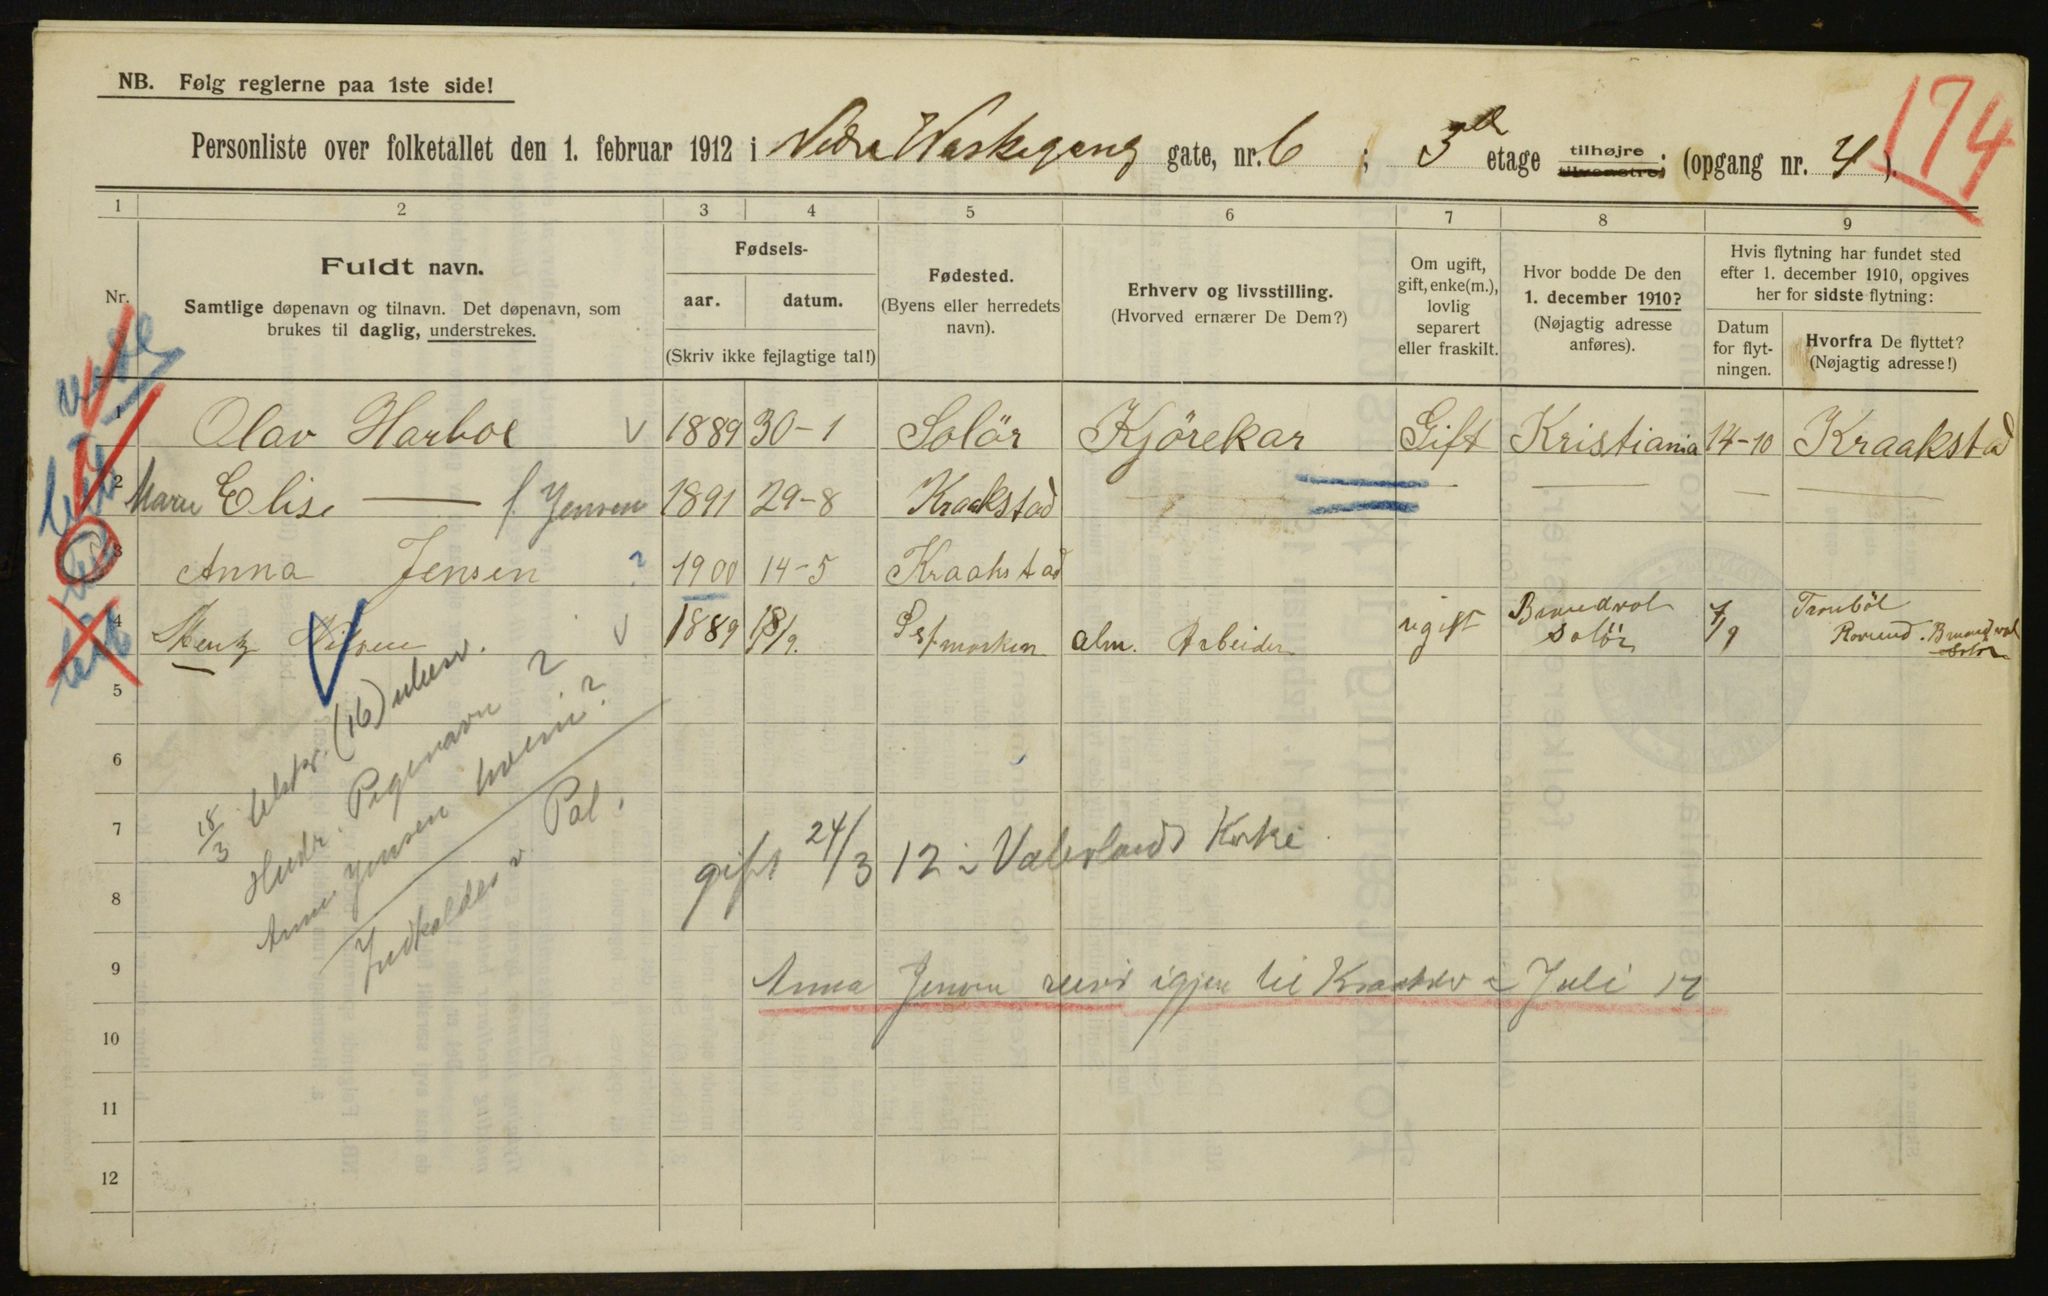 NB. Følg reglerne paa 1ste side!
174
Personliste over folketallet den 1. februar 1912 i Nedre Vaskegang gate, nr. 6 ; 3die etage tilhøjre tilvenstre; (opgang nr. 4 ).
1 2 3 4 5 6 7 8 9
Nr.
Fuldt navn.
Samtlige døpenavn og tilnavn. Det døpenavn, som
brukes til daglig, understrekes.
Fødsels-
aar. datum.
(Skriv ikke fejlagtige tal!)
Fødested.
(Byens eller herredets
navn).
Erhverv og livsstilling.
(Hvorved ernærer De Dem?)
Om ugift,
gift, enke(m.),
lovlig
separert
eller fraskilt.
Hvor bodde De den
1. december 1910?
(Nøjagtig adresse
anføres).
Hvis flytning har fundet sted
efter 1. december 1910, opgives
her for sidste flytning:
Datum
for flyt-
ningen.
Hvorfra De flyttet?
(Nøjagtig adresse!)
1 Olav Harboe 1889 30-1 Solör Kjörekar Gift Kristiania 14-10 Kraakstad
2 Marie Elise — f Jensen 1891 29-8 Kraakstad — — — —
3 Anna Jensen ? 1900 14-5 Kraakstad
4 Nilsen 1889 18/9. alm. Arbeider ugift Brandvol Solör 7/9 Brandvol Solör
5
6
7
8
9
10
11
12
18/3 (16)
Hustr. Pigenavn ?
Anna Jensen hvem?
Indkaldes v. Pol.
gift 24/3 12 i Vaterlands Kirke
Anna Jensen reist igjen til i Juli 12